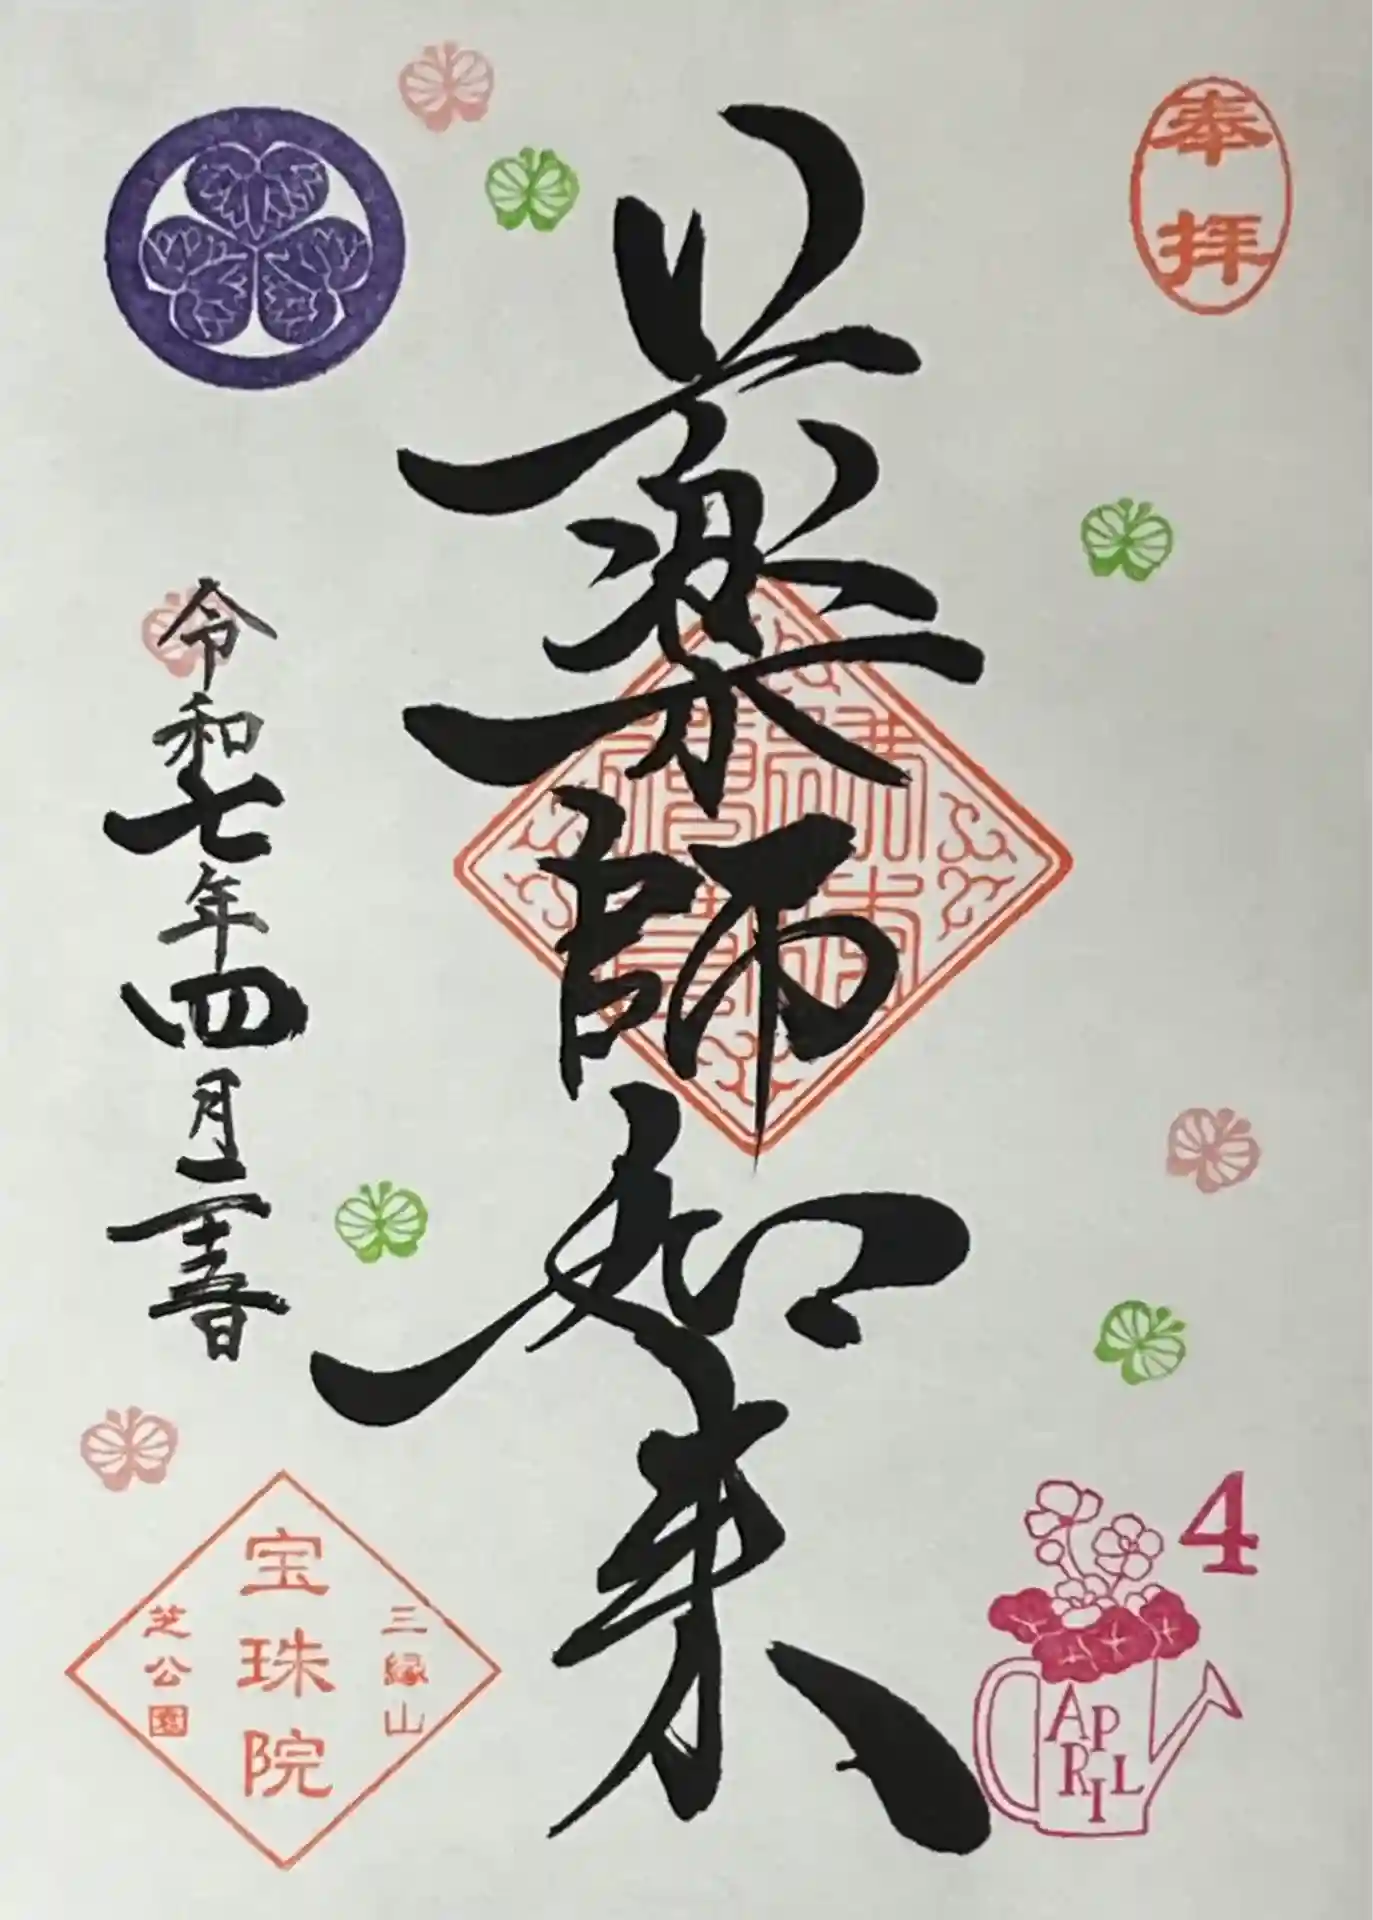 奉拝
薬師如来
令和七年四月二十五日
三縁山
宝珠院
芝公園
4
APRIL